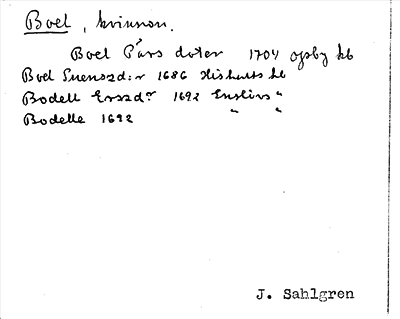 Boel, kvinnon.
Boel Pårs doter 1704 opsby kb
Boel Suenszd:r 1686 Hishults kb
Bodell Erszd:r 1692 Enslövs "
Bodelle 1692 " "
J. Sahlgren